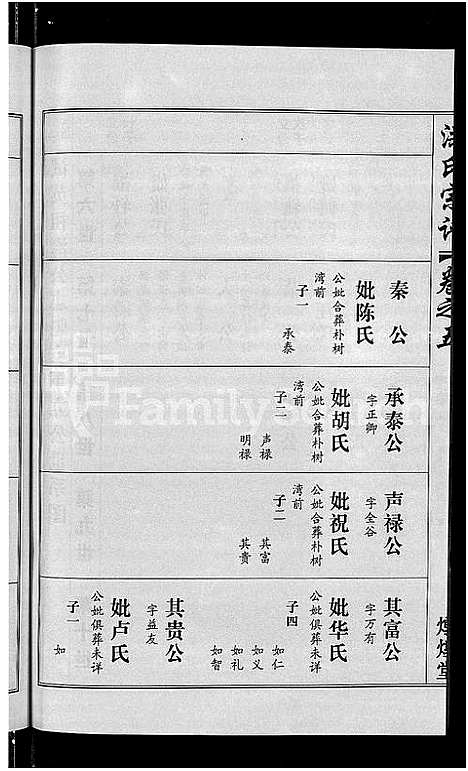 氏宗谱 卷之五
秦公
妣陈氏
公妣合葬朴树
湾前
子一
承泰
承泰公
字正卿
妣胡氏
公妣合葬朴树
湾前
子二
声禄
明禄
声禄公
字全谷
妣祝氏
公妣合葬朴树
湾前
子二
其富
其贵
其富公
字万有
妣华氏
公妣俱葬未详
子四
如仁
如义
如礼
如智
其贵公
字益友
妣卢氏
公妣俱葬未详
子一
如
堂
FamilySearch